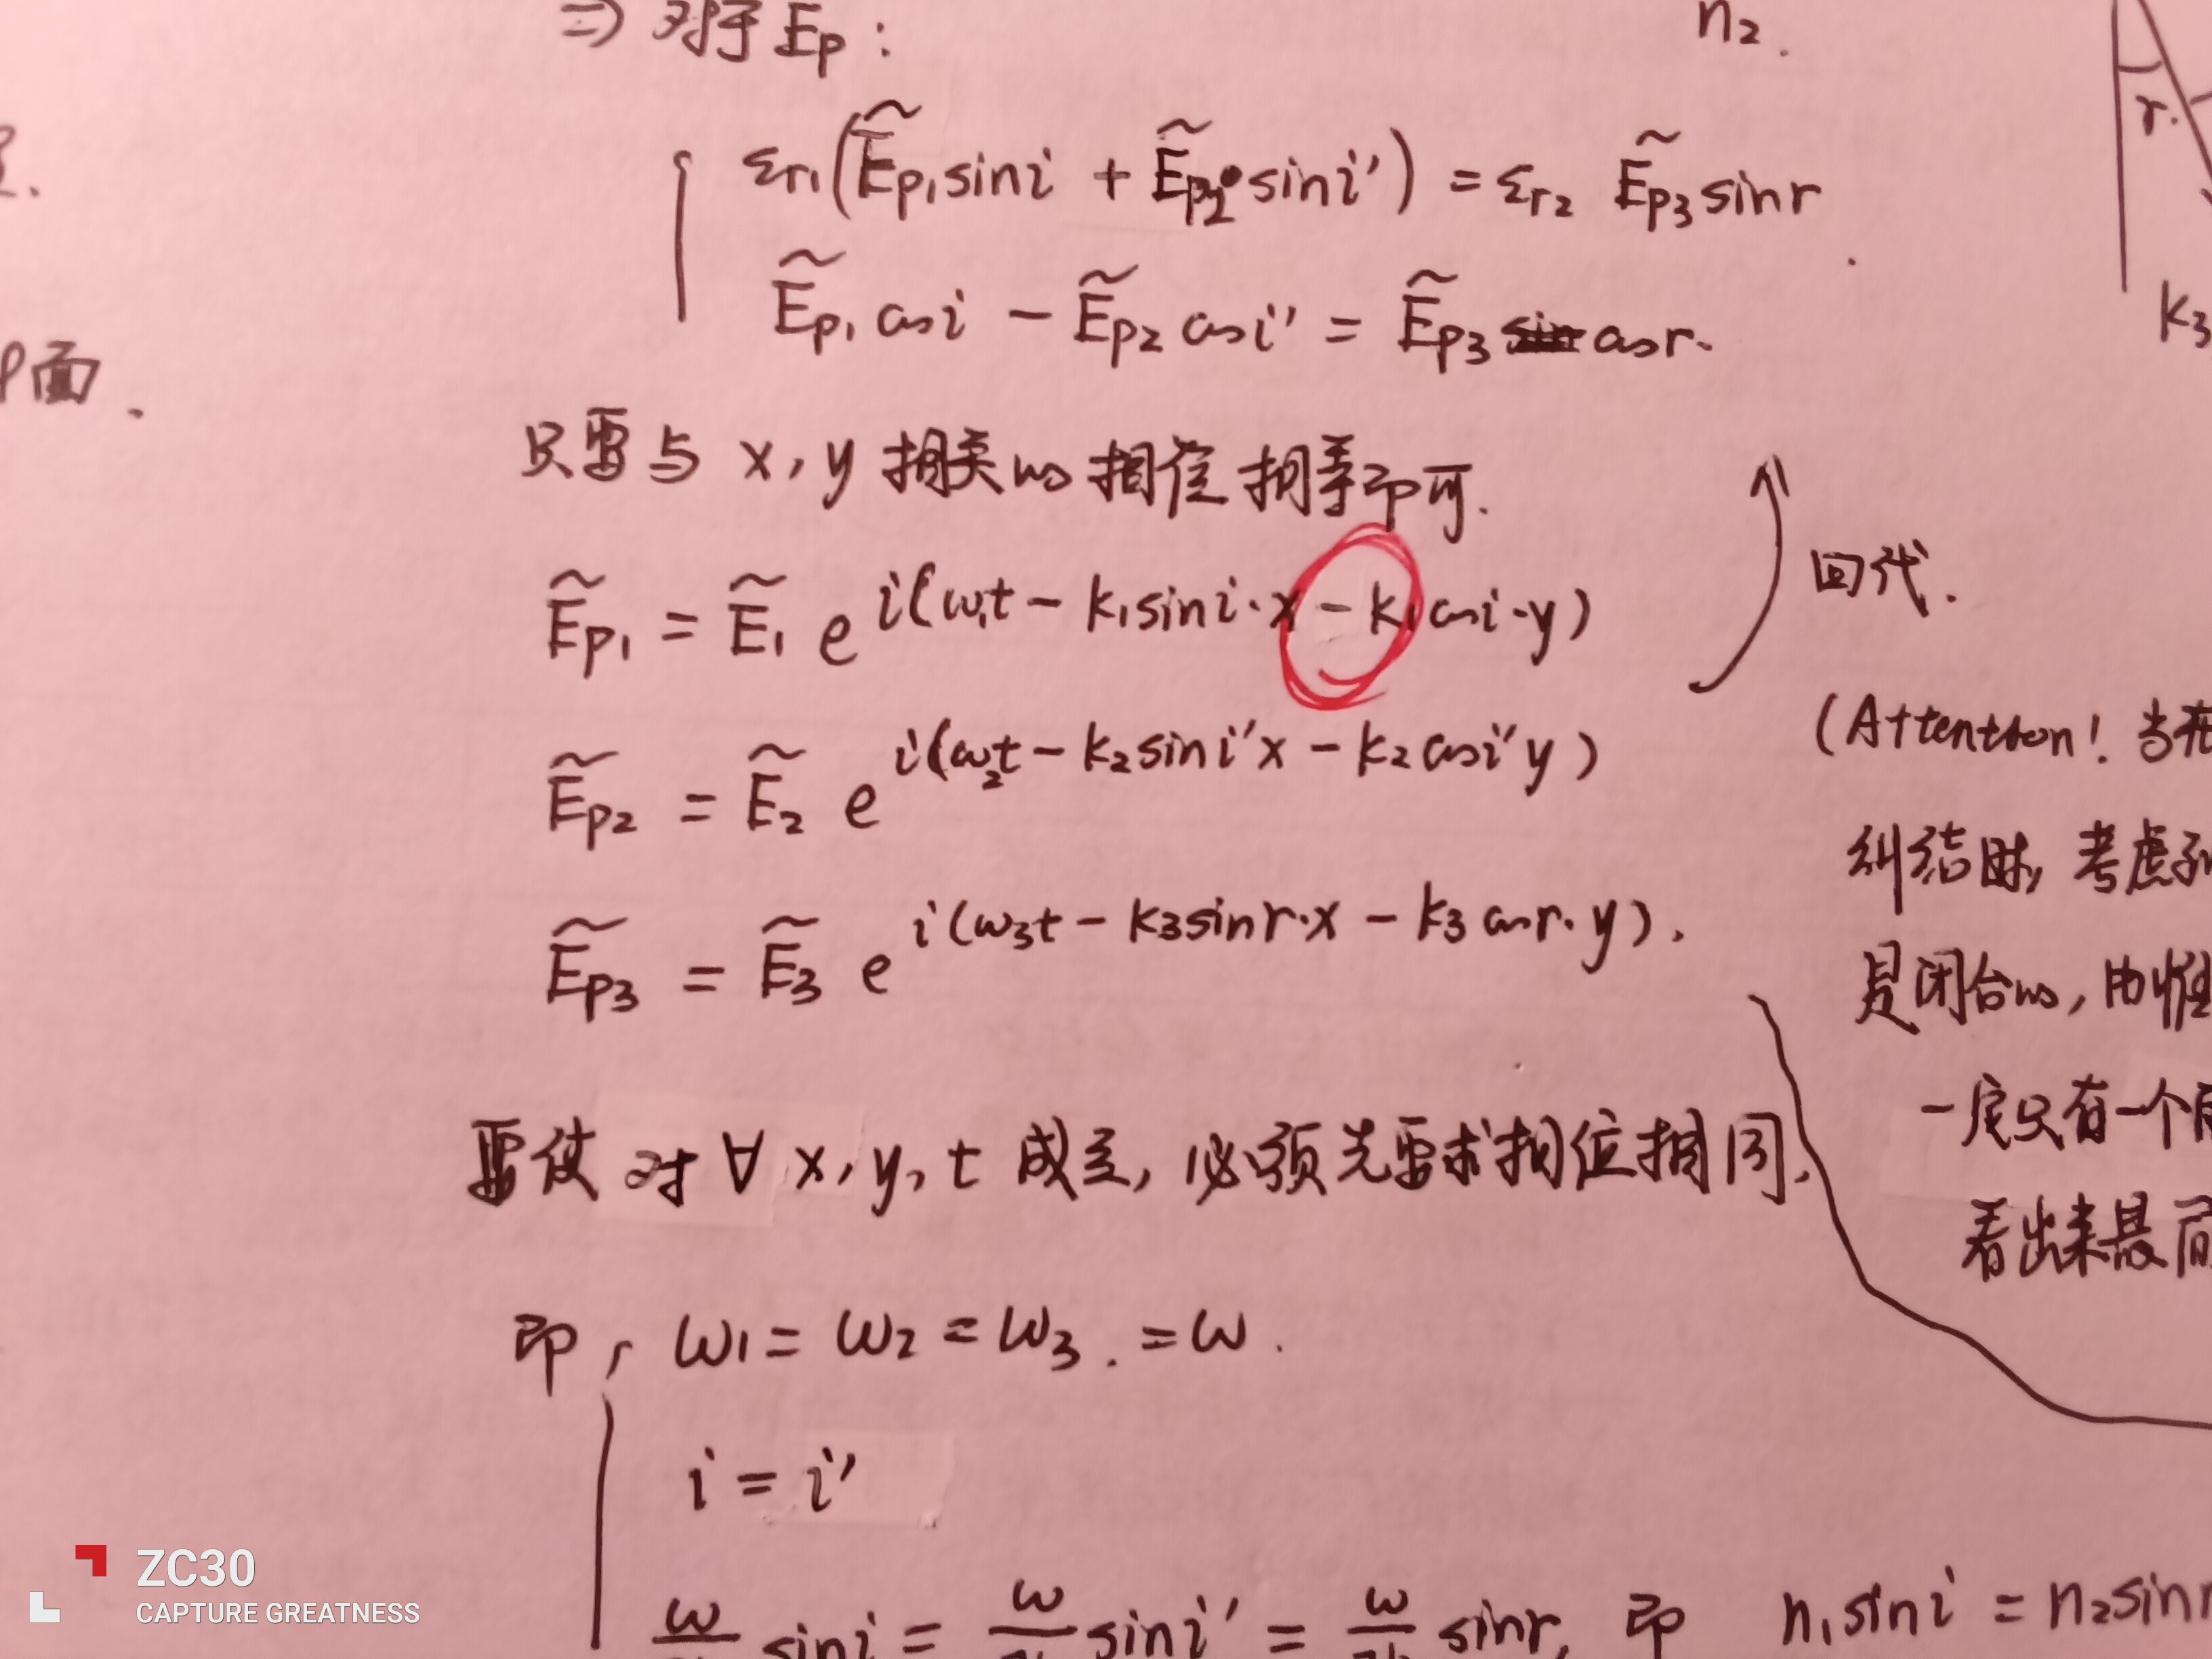 ⇒ 对于 Ep :
n₂.
r.
εr₁(Ẽp₁sini + Ẽp₂sini') = εr₂ Ẽp₃sinr
Ẽp₁cosi − Ẽp₂cosi' = Ẽp₃cosr.
k₃
P面.
只需与 x, y 相关的相位相等即可.
回代.
Ẽp₁ = Ẽ₁ e^i(ω₁t − k₁sini·x − k₁cosi·y)
Ẽp₂ = Ẽ₂ e^i(ω₂t − k₂sini'x − k₂cosi'y)
(Attention! 当在
纠结时, 考虑到
Ẽp₃ = Ẽ₃ e^i(ω₃t − k₃sinr·x − k₃cosr·y).
是闭合的, 由惟
一定只有一个
需使对 ∀ x, y, t 成立, 必须先要求相位相同.
看出来是
即, ω₁ = ω₂ = ω₃. = ω.
i = i'
ω sini = ω sini' = ω sinr, 即 n₁sini = n₂sinr
ZC30
CAPTURE GREATNESS